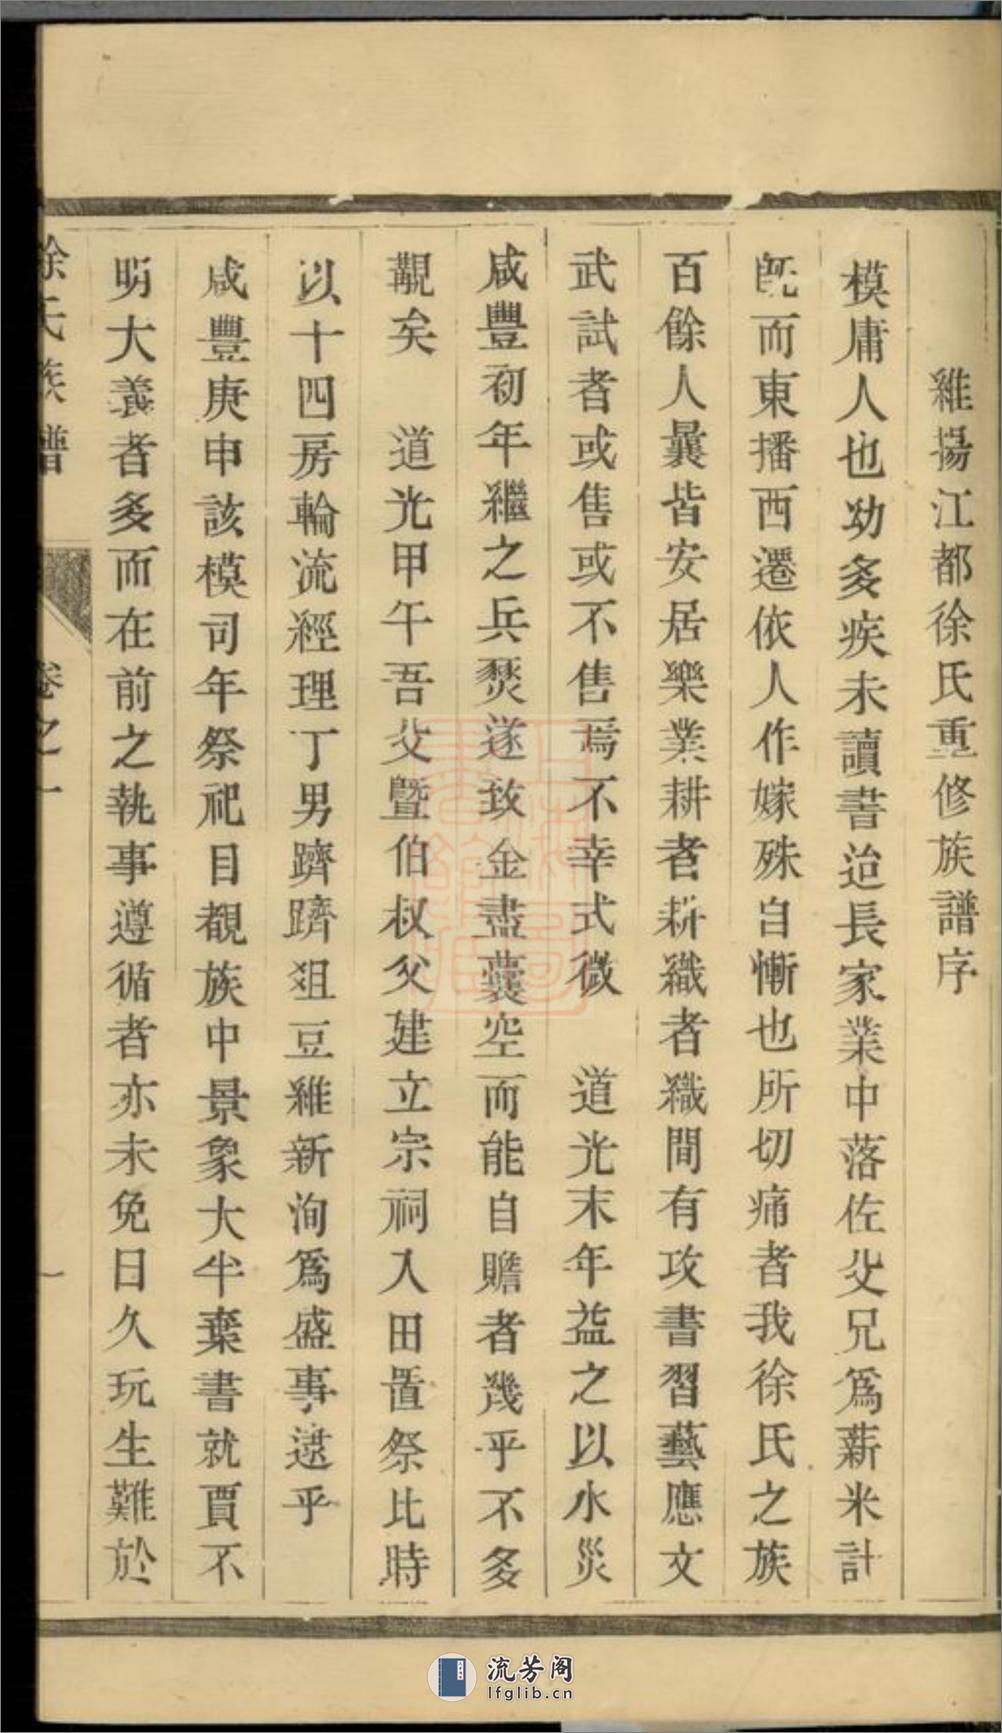 維揚江都徐氏重修族譜序
模庸人也幼多疾未讀書迨長家業中落佐父兄爲薪米計
旣而東播西遷依人作嫁殊自慚也所切痛者我徐氏之族
百餘人曩皆安居樂業耕者耕織者織間有攻書習藝應文
武試者或售或不售焉不幸式微　道光末年益之以水災
咸豐初年繼之兵燹遂致金盡囊空而能自贍者幾乎不多
覯矣　道光甲午吾父暨伯叔父建立宗祠入田置祭比時
以十四房輪流經理丁男躋躋俎豆維新洵爲盛事逮乎
咸豐庚申該模司年祭祀目覩族中景象大半棄書就賈不
明大義者多而在前之執事遵循者亦未免日久玩生難於
徐氏族譜
卷之一
一
流芳阁
lfglib.cn